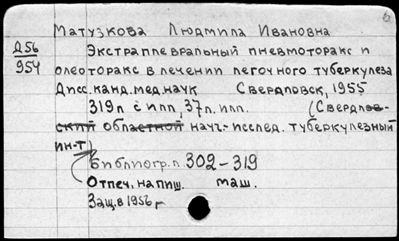 Матузкова Людмила Ивановна
Д56
954
Экстраплевральный пневмоторакс и
олеоторакс в лечении легочного туберкулеза
Дисс. канд. мед. наук Свердловск, 1955
319л с илл, 37л. илл. (Свердлов-
ский областной науч.-исслед. туберкулезный
ин-т)
Библиогр. л. 302-319
Отпеч. на пиш. маш.
Защ. в 1956 г